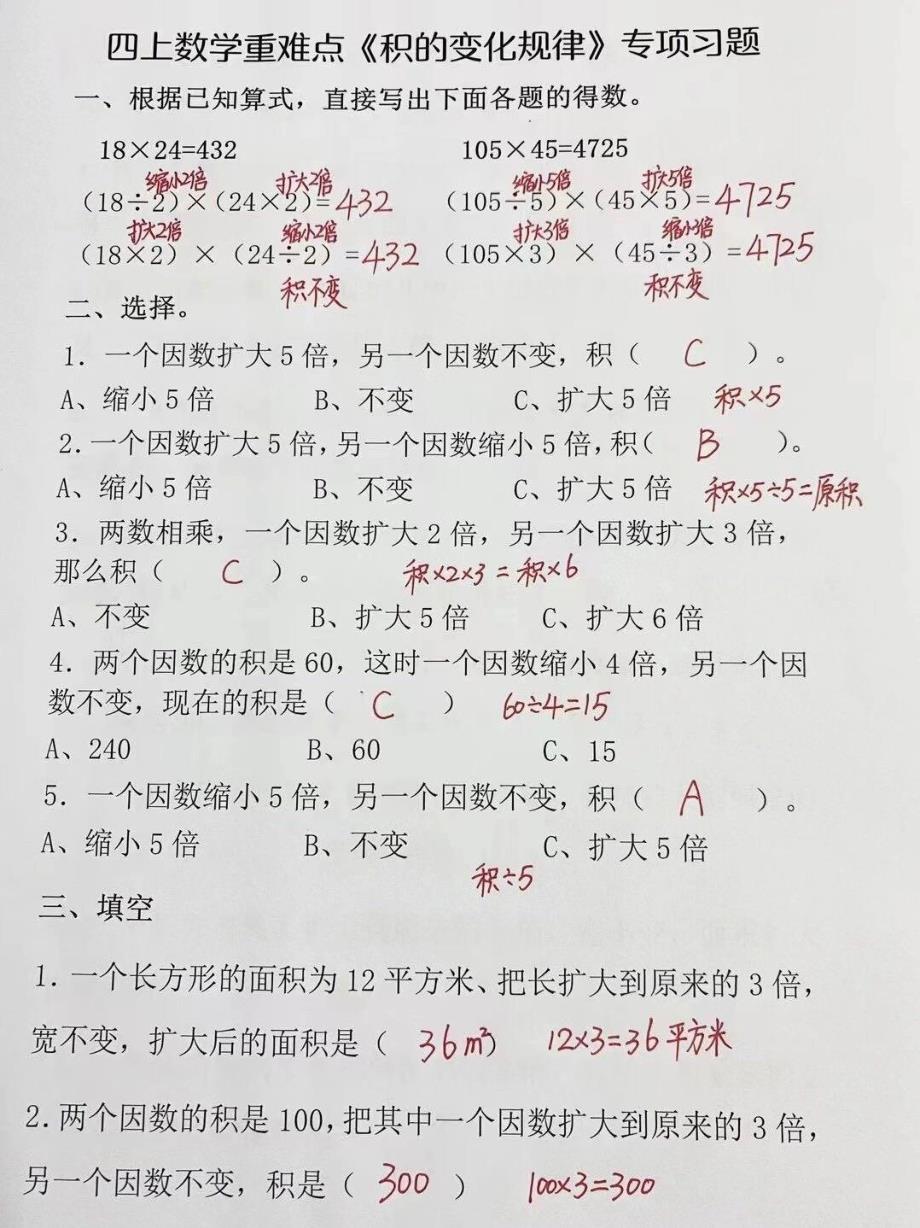 四上数学重难点《积的变化规律》专项习题
一、根据已知算式，直接写出下面各题的得数。
18×24=432 105×45=4725
缩小2倍 扩大2倍 缩小5倍 扩大5倍
（18÷2）×（24×2）=432 （105÷5）×（45×5）=4725
扩大2倍 缩小2倍 扩大3倍 缩小3倍
（18×2）×（24÷2）=432 （105×3）×（45÷3）=4725
积不变 积不变
二、选择。
1. 一个因数扩大5倍，另一个因数不变，积（ C ）。
A、缩小5倍 B、不变 C、扩大5倍 积×5
2.一个因数扩大5倍,另一个因数缩小5倍,积( B )。
A、缩小5倍 B、不变 C、扩大5倍 积×5÷5=原积
3. 两数相乘，一个因数扩大2倍，另一个因数扩大3倍，
那么积（ C ）。 积×2×3=积×6
A、不变 B、扩大5倍 C、扩大6倍
4. 两个因数的积是60，这时一个因数缩小4倍，另一个因
数不变，现在的积是（ C ） 60÷4=15
A、240 B、60 C、15
5. 一个因数缩小5倍，另一个因数不变，积（ A ）。
A、缩小5倍 B、不变 C、扩大5倍
积÷5
三、填空
1. 一个长方形的面积为12平方米、把长扩大到原来的3倍，
宽不变，扩大后的面积是（ 36m²） 12×3=36平方米
2.两个因数的积是100,把其中一个因数扩大到原来的3倍，
另一个因数不变，积是（ 300 ） 100×3=300